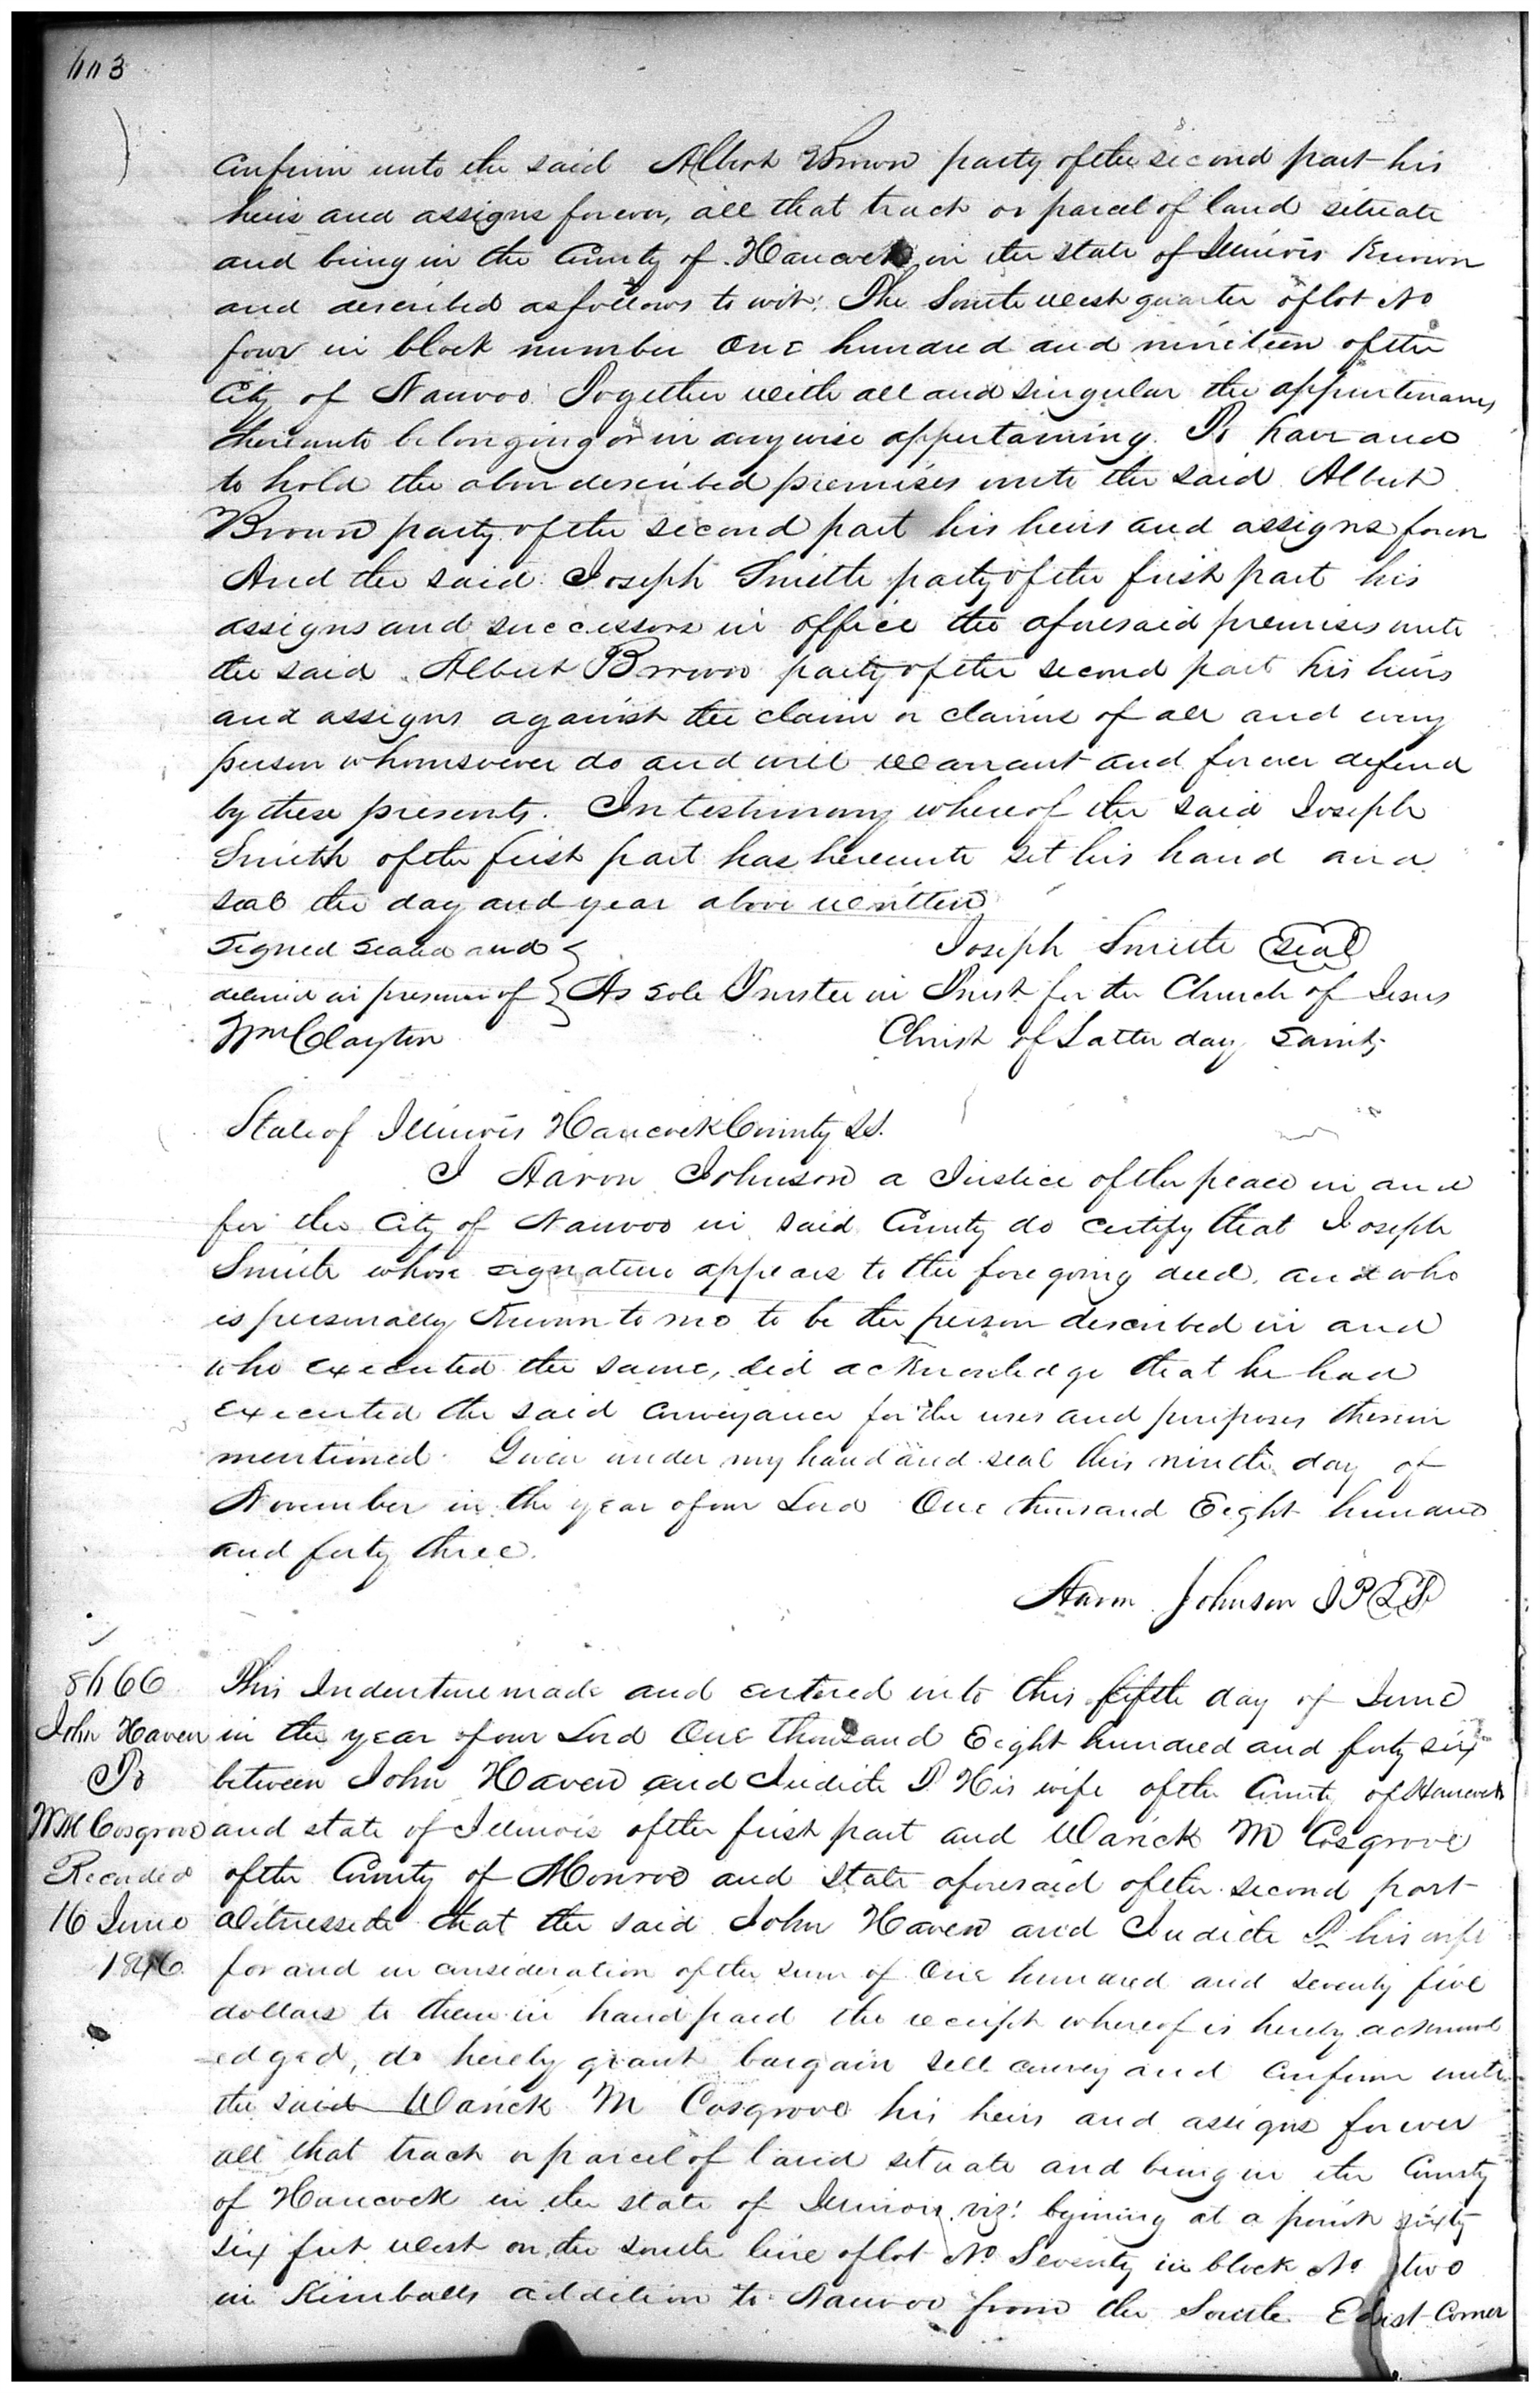 confirm unto the said Albert Brown party of the second part his
heirs and assigns forever, all that track or parcel of land situate
and being in the County of Hancock in the state of Illinois Known
and described as follows to wit: The South west quarter of lot No
four in block number One hundred and nineteen of the
City of Nauvoo. Together with all and singular the appurtenances
thereunto belonging or in anywise appertaining. To have and
to hold the above described premises unto the said Albert
Brown party of the second part his heirs and assigns forever
And the said Joseph Smith party of the first part his
assigns and successors in office the aforesaid premises unto
the said Albert Brown party of the second part his heirs
and assigns against the claim or claims of all and every
person whomsoever do and will warrant and forever defend
by these presents. In testimony whereof the said Joseph
Smith of the first part has hereunto set his hand and
seal the day and year above written
Signed sealed and Joseph Smith Seal
delivered in presence of As Sole Trustee in Trust for the Church of Jesus
Wm Clayton Christ of Latter day Saints
State of Illinois Hancock County SS.
I Aaron Johnson a Justice of the peace in and
for the City of Nauvoo in said County do certify that Joseph
Smith whose signature appears to the foregoing deed, and who
is personally Known to me to be the person described in and
who executed the same, did acknowledge that he had
executed the said conveyance for the uses and purposes therein
mentioned. Given under my hand and seal this ninth day of
November in the year of our Lord One thousand Eight hundred
and forty three.
Aaron Johnson JP LS
This Indenture made and entered into this fifth day of June
John Haven in the year of our Lord One thousand Eight hundred and forty six
To between John Haven and Judith P His wife of the County of Hancock
W M Cosgrove and state of Illinois of the first part and Warick M Cosgrove
Recorded of the County of Monroe and State aforesaid of the second part
16 June Witnesseth that the said John Haven and Judith P his wife
1846. for and in consideration of the sum of One hundred and seventy five
dollars to them in hand paid the receipt whereof is hereby acknowl
-edged, do hereby grant bargain sell convey and confirm unto
the said Warick M Cosgrove his heirs and assigns forever
all that track or parcel of land situate and being in the County
of Hancock in the state of Illinois viz: begining at a point sixty
six feet west on the south line of lot No Seventy in block No two
in Kimballs addition to Nauvoo from the South East Corner